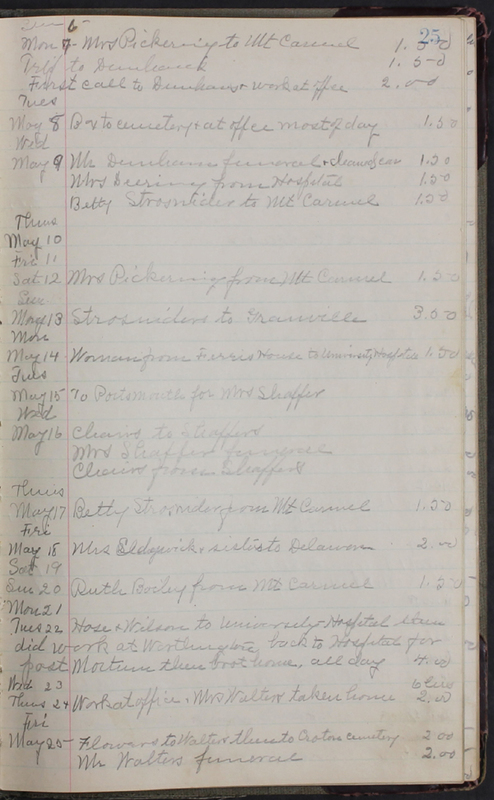 25
Sun 6
Mon 7 - Mrs Pickering to Mt Carmel 1.50
to 1.50
First call to + work at office 2.00
Tues
May 8 to cemetery + at office most of day 1.50
Wed
May 9 Mr Dunham funeral + 1.50
Mrs Deering from Hospital 1.50
Betty Strosnider to Mt Carmel 1.50
Thurs
May 10
Fri 11
Sat 12 Mrs Pickering from Mt Carmel 1.50
Sun
May 13 Strosniders to Granville 3.50
Mon
May 14 Woman from Ferris House to University Hospital 1.50
Tues
May 15 To Portsmouth for Mrs Shaffer
Wed
May 16 Chairs to Shaffers
Mrs Shaffer funeral
Chairs from Shaffers
Thurs
May 17 Betty Strosnider from Mt Carmel 1.50
Fri
May 18 Mrs Eldgwick + sister to Delaware 2.00
Sat 19
Sun 20 Ruth Bailey from Mt Carmel 1.50
Mon 21
Tues 22 Hase + Wilson to University Hospital then
did work at Worthington, back to Hospital for
post Mortum then brot home, all day 4.00
Wed 23
Thurs 24 Work at office, Mrs Walters taken home 2.00
Fri
May 25 - Flowers to Walters then to Croton cemetery 2.00
Mr Walters funeral 2.00